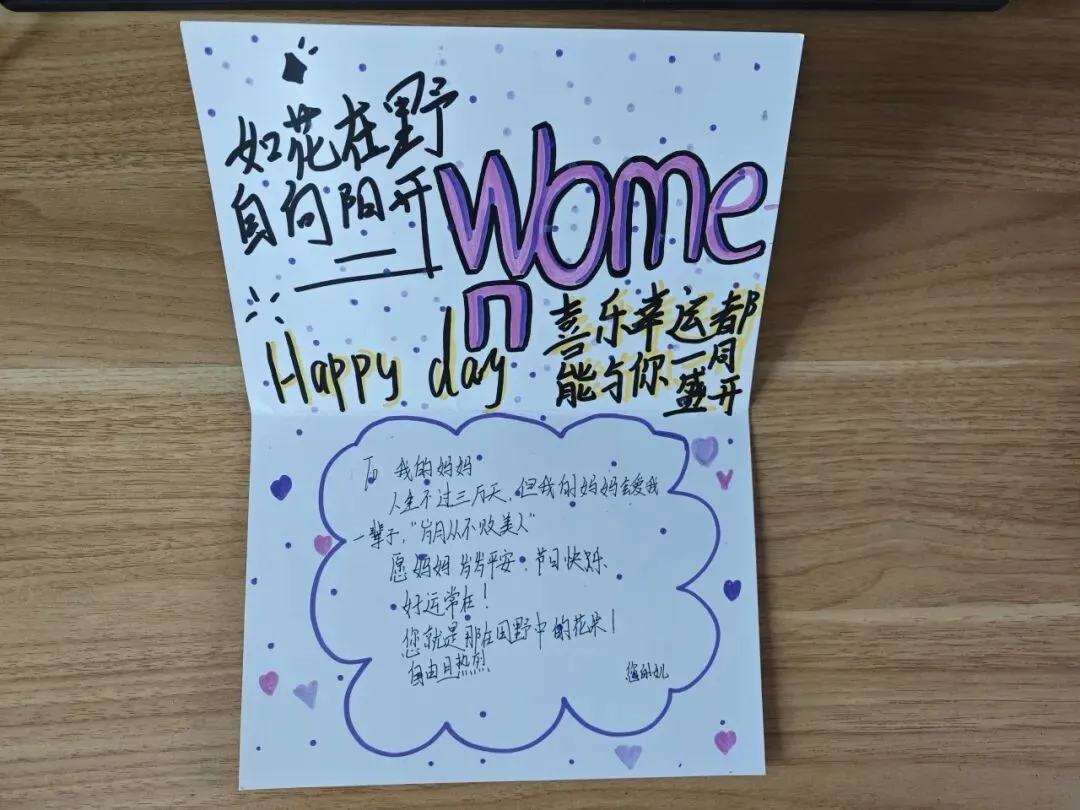 如花在野
自向阳开
Women
Happy day
喜乐幸运都
能与你一同
盛开
To 我的妈妈
人生不过三万天,但我的妈妈会爱我
一辈子,"岁月从不败美人"
愿妈妈岁岁平安.节日快乐
好运常在!
您就是那在田野中的花朵!
自由且热烈
您的儿